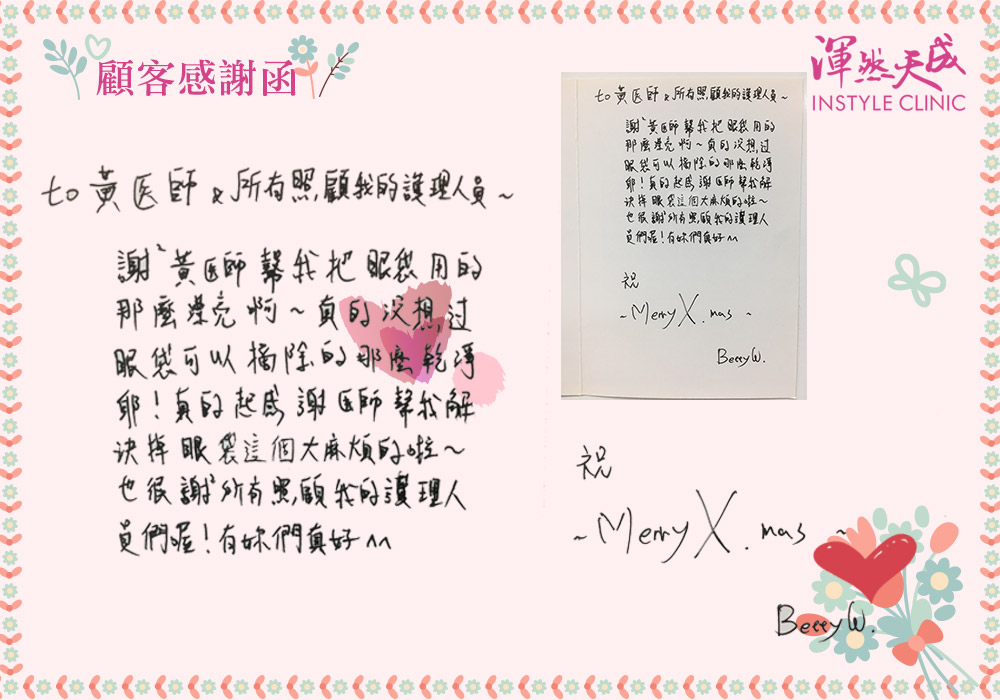 顧客感謝函
渾然天成
INSTYLE CLINIC
to 黃医師 & 所有照顧我的護理人員~
謝〝黃医師幫我把眼袋用的
那麼漂亮啊~真的沒想過
眼袋可以摘除的那麼乾淨
耶!真的起感謝医師幫我解
決掉眼袋這個大麻煩的啦~
也很謝〝所有照顧我的護理人
員們喔!有妳們真好^^
祝
~Merry X.mas ~
Betty W.
to 黃医師 & 所有照顧我的護理人員~
謝〝黃医師幫我把眼袋用的
那麼漂亮啊~真的沒想過
眼袋可以摘除的那麼乾淨
耶!真的起感謝医師幫我解
決掉眼袋這個大麻煩的啦~
也很謝〝所有照顧我的護理人
員們喔!有妳們真好^^
祝
~Merry X.mas ~
Betty W.